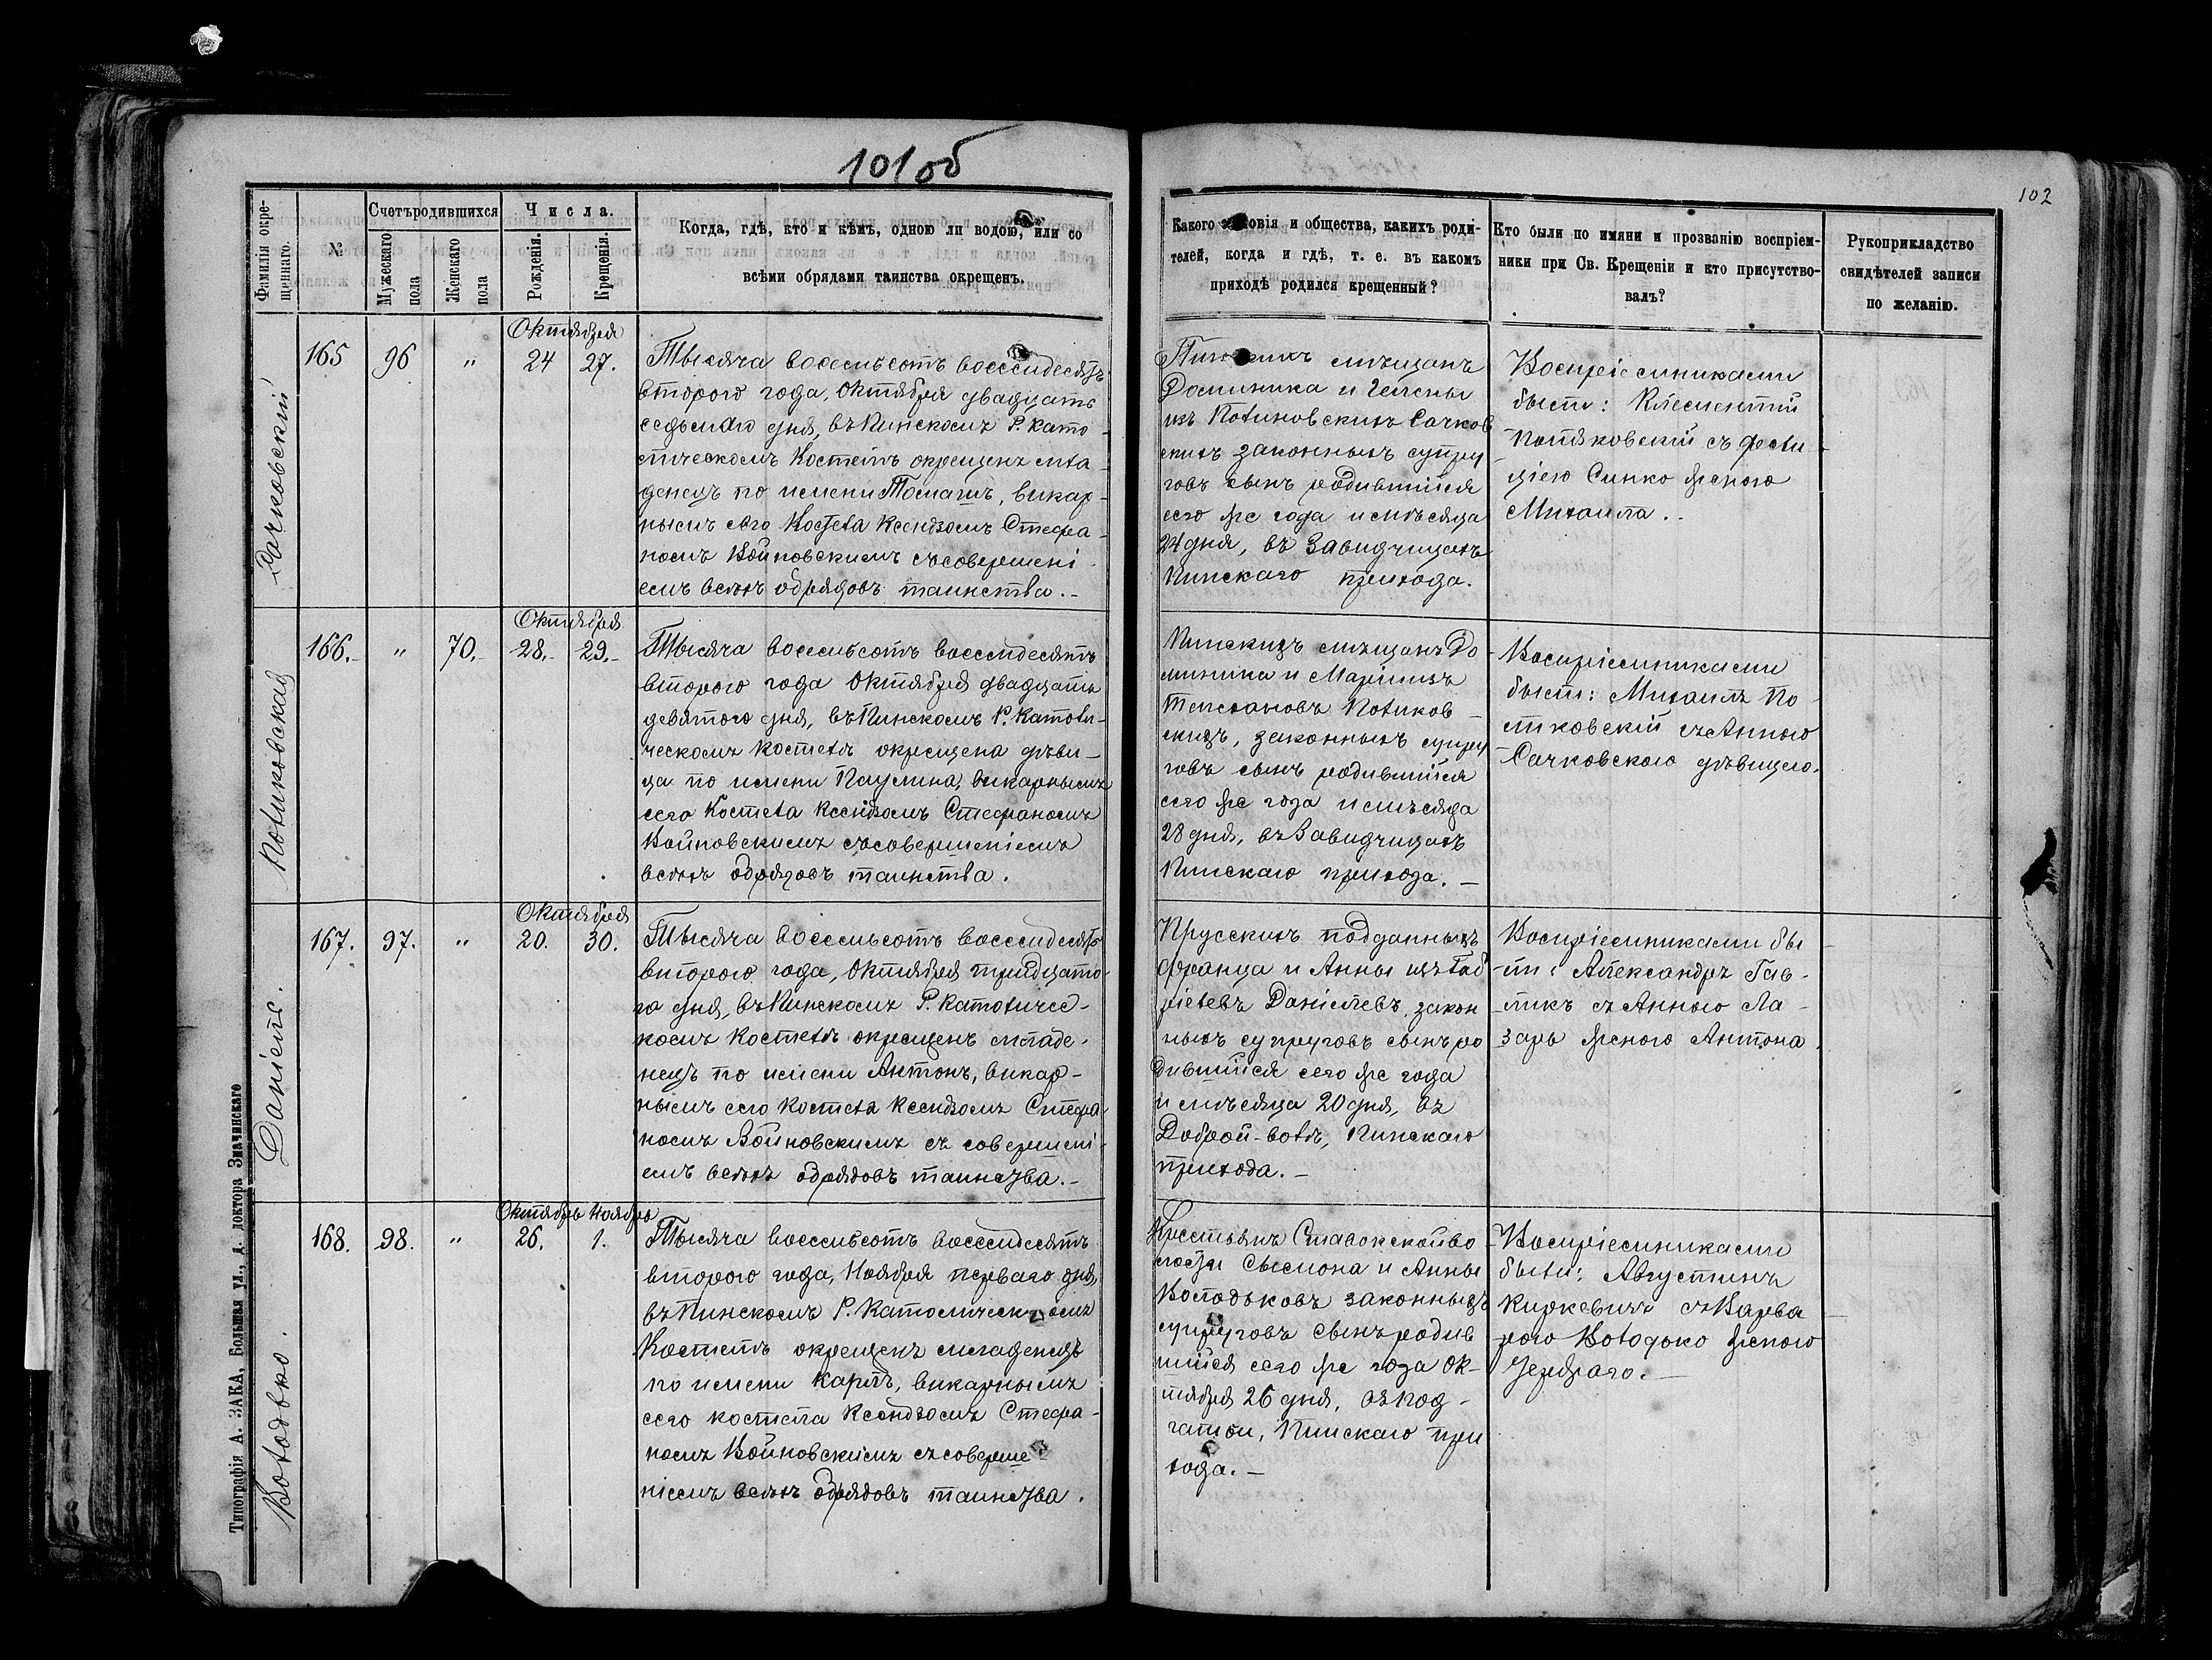 101 об
102
Фамилія окре-
щеннаго.
№
Счетъ родившихся
Мужескаго
пола
Женскаго
пола
Числа.
Рожденія.
Крещенія.
Когда, гдѣ, кто и кѣмъ, одною ли водою, или со
всѣми обрядами таинства окрещенъ.
Какого званія и общества, какихъ роди-
телей, когда и гдѣ, т. е. въ какомъ
приходѣ родился крещенный?
Кто были по имяни и прозванію воспріем-
ники при Св. Крещеніи и кто присутство-
валъ?
Рукоприкладство
свидѣтелей записи
по желанію.
165
96
"
Октября
24
27.
Тысяча восемьсотъ восемдесятъ
втораго года, Октября двадцать
седьмаго дня, въ Пинскомъ Р. Като-
лическомъ Костелѣ окрещенъ мла-
денецъ по имени Томашъ, викар-
нымъ сего Костела Ксендзомъ Стефа-
номъ Войновскимъ съ совершені-
емъ всѣхъ обрядовъ таинства.-
мѣщанъ
Доминика и Гелены
изъ Поликовскихъ Сачков
скихъ законныхъ супру
говъ сынъ родившійся
сего же года и мѣсяца
24 дня, въ Завидчицахъ
Пинскаго прихода.
Воспріемниками
были: Клементій
Поликовскій съ Фели-
ціею Синко женою
Михаила.-
166.-
"
70.-
Октября
28.-
29.-
Поликовская
Тысяча восемьсотъ восемдесятъ
втораго года Октября двадцать
девятаго дня, въ Пинскомъ Р. Католи-
ческомъ Костелѣ окрещена дѣви-
ца по имени Паулина, викарнымъ
сего Костела Ксендзомъ Стефаномъ
Войновскимъ съ совершеніемъ
всѣхъ обрядовъ таинства.
Пинскихъ мѣщанъ До-
миника и Маріи изъ
Поликов-
скихъ, законныхъ супру
говъ сынъ родившійся
сего же года и мѣсяца
28 дня, въ Завидчицахъ
Пинскаго прихода.-
Воспріемниками
были: Михаилъ По-
ликовскій съ Анною
Сачковскою дѣвицею.
167.
97.
"
Октября
20.
30.
Даніель.
Тысяча восемьсотъ восемдесятъ
втораго года, Октября тридцата-
го дня, въ Пинскомъ Р. Католичес-
комъ Костелѣ окрещенъ младе-
нецъ по имени Антонъ, викар-
нымъ сего Костела Ксендзомъ Стефа-
номъ Войновскимъ съ совершені-
емъ всѣхъ обрядовъ таинства.-
Прусскихъ подданныхъ
Франца и Анны изъ Габ
ріелевъ Даніелевъ, закон
ныхъ супруговъ сынъ ро
дившійся сего же года
и мѣсяца 20 дня, въ
Доброй-волѣ, Пинскаго
прихода.-
Воспріемниками бы-
ли: Александръ Гав-
ликъ съ Анною Ла-
зарь женою Антона.
168.
98.
"
Октября Ноября
26.
1.
Володько.
Тысяча восемьсотъ восемдесятъ
втораго года, Ноября перваго дня,
въ Пинскомъ Р. Католическомъ
Костелѣ окрещенъ младенецъ
по имени Карлъ, викарнымъ
сего костела Ксендзомъ Стефа-
номъ Войновскимъ съ соверше-
ніемъ всѣхъ обрядовъ таинства.
Крестьянъ Ставокской во-
лости Сымона и Анны
Володьковъ законныхъ
супруговъ сынъ родив
шійся сего же года Ок-
тября 26 дня, въ Под-
гатьи, Пинскаго при
хода.-
Воспріемниками
были: Августинъ
Киркевичъ съ Варва
рою Володько женою
Типографія А. ЗАКА, Большая ул., д. доктора Значинскаго